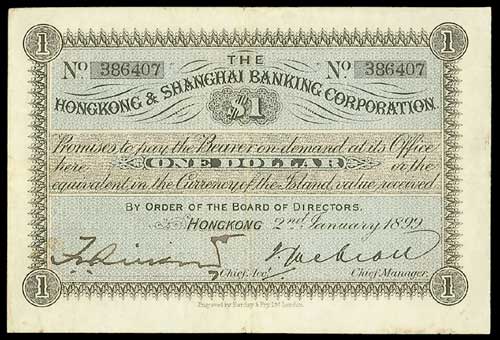 1 1
THE
No 386407 No 386407
HONGKONG & SHANGHAI BANKING CORPORATION.
$1
Promises to pay the Bearer on demand at its Office
here ONE DOLLAR or the
equivalent in the Currency of the Island, value received
BY ORDER OF THE BOARD OF DIRECTORS.
HONGKONG 2nd January 1899
Chief Acct Chief Manager.
1 1
Engraved by Barclay & Fry Ltd London.